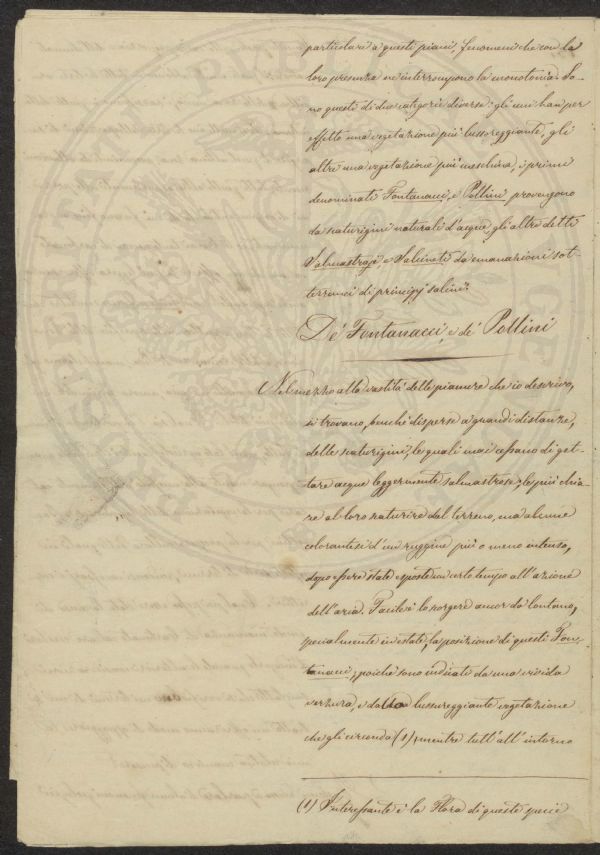 particolari a questi piani, fenomeni che con la
loro presenza ne interrompono la monotonia. So-
no questi di due categorie diverse: gli uni han per
effetto una vegetazione più lussureggiante, gli
altri una vegetazione più meschina, i primi
denominati Fontanacci, e Pollini provengono
da scaturigini naturali d'acque, gli altri detti
Salmastraje, e Salineti da emanazioni sot-
terranei di principj salini.
De' Fontanacci, e de' Pollini
Nel mezzo alla vastità delle pianure che io descrivo,
si trovano, benché disperse a grandi distanze,
delle scaturigini, le quali mai cessano di get-
tare acque leggermente salmastrose; le più chia-
re al loro scaturire dal terreno, ma alcune
colorantesi d'un ruggine più o meno intenso,
dopo essere state esposte un certo tempo all'azione
dell'aria. Facile si è lo scorgere ancor da lontano,
specialmente in estate, la posizione di questi Fon-
tanacci; poiché sono indicati da una vivida
verzura, e dalla lussureggiante vegetazione
che gli circonda (1), mentre tutt'all'intorno
(1) Interessante è la Flora di queste specie